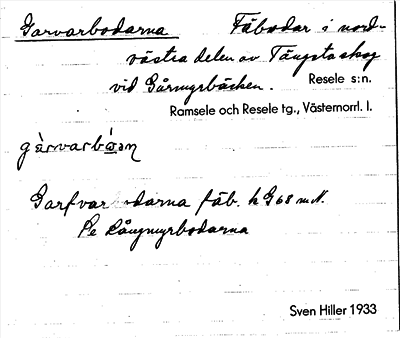 Garvarbodarna Fäbodar i nord-
västra delen av Tängsta skog
vid Gårmyrbäcken. Resele s:n.
Ramsele och Resele tg., Västernorrl. l.
Garfvarbodarna fäb. h G68 m.N.
Pe Långmyrbodarna
Sven Hiller 1933